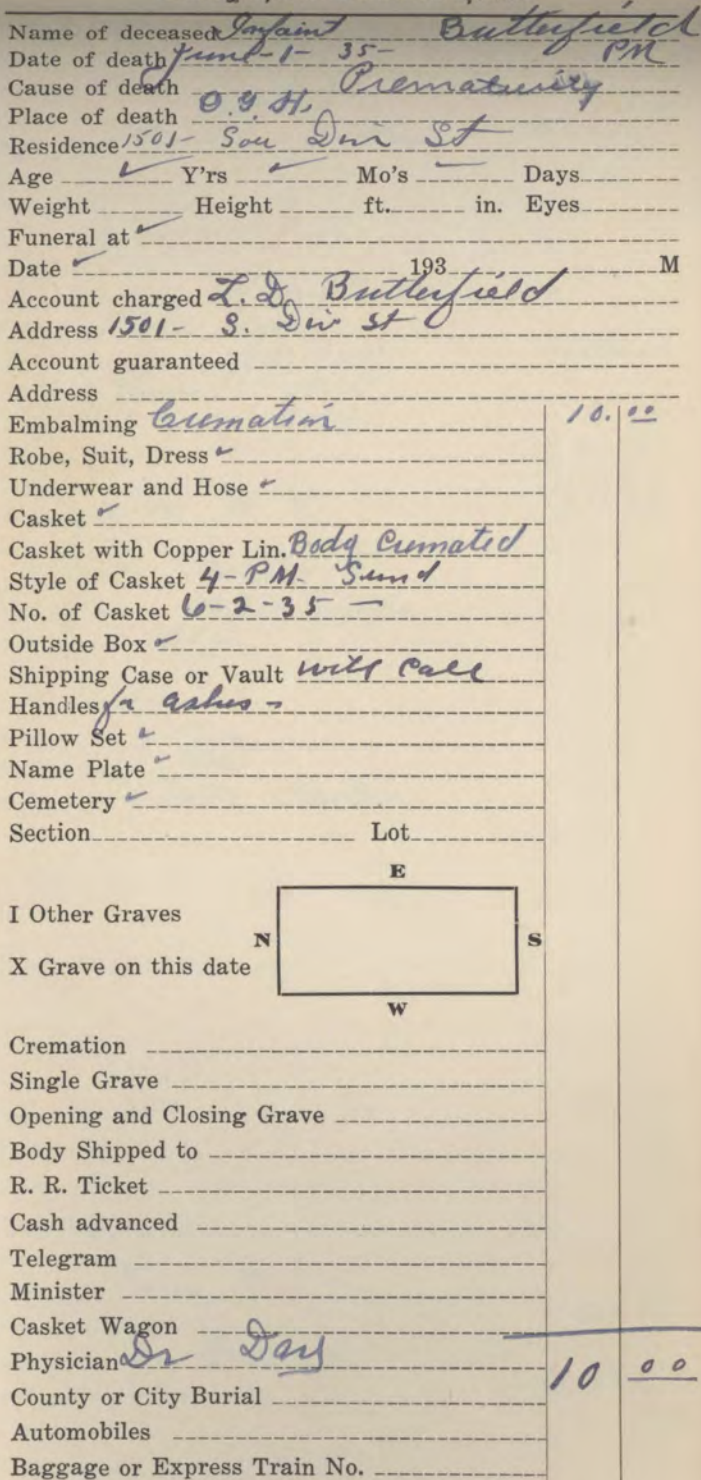 Name of deceased Infaint Butterfield
Date of death June-1- 35- PM
Cause of death Prematurity
Place of death O.G.H.
Residence 1501- Sou Div St
Age Y'rs Mo's Days
Weight Height ft. in. Eyes
Funeral at
Date 193 M
Account charged L. D. Butterfield
Address 1501- S. Div St
Account guaranteed
Address
Embalming Cremation 10.00
Robe, Suit, Dress
Underwear and Hose
Casket
Casket with Copper Lin. Body Cremated
Style of Casket 4-PM- Sund
No. of Casket 6-2-35-
Outside Box
Shipping Case or Vault will Call
Handles for ashes-
Pillow Set
Name Plate
Cemetery
Section Lot
E
I Other Graves
N S
X Grave on this date
W
Cremation
Single Grave
Opening and Closing Grave
Body Shipped to
R. R. Ticket
Cash advanced
Telegram
Minister
Casket Wagon
Physician Dr Day 10 00
County or City Burial
Automobiles
Baggage or Express Train No.